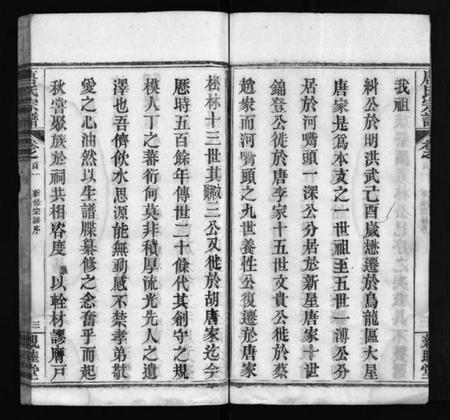 我祖
糾公於胡洪武己酉歲懋遷於烏龍區大屋
唐家是爲本支之一世祖至五世一溥公分
居於河嘴頭一深公分居於新屋唐家十世
錦登公徙於唐李家十五世文貴公徙於蔡
趙家而河嘴頭之九世養性公復遷於唐家
松林十三世其 三公又徙於胡唐家迄今
歷時五百餘年傳世二十餘代其創守之規
模人丁之蕃衍何莫非積厚流光先人之遺
澤也吾儕飲水思源能無動感不禁孝弟敬
愛之心油然以生譜牒纂修之念奮乎而起
秋嘗聚族於祠共相咨度 以輇材謬膺戸
唐氏宗譜
卷之首一
新修宗譜序
三
親睦堂